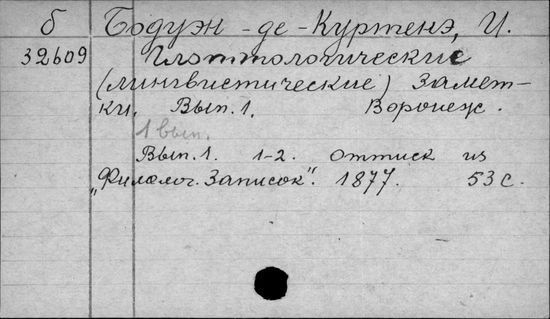 б Бодуэн-де-Куртенэ, И.
32609 Глоттологические
(лингвистические) замет-
ки. Вып. 1. Воронеж.
1 вып.
Вып. 1. 1-2. оттиск из
„Филолог. Записок". 1877. 53 с.